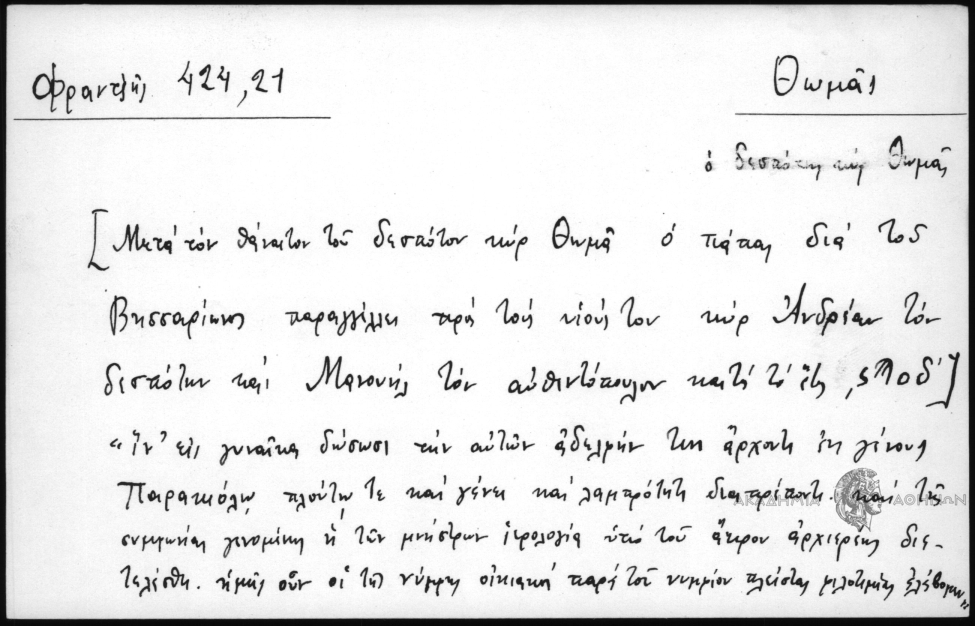 Φραντζῆς 424,21
Θωμᾶς
ὁ δεσπότης κύρ Θωμᾶς
[Μετά τόν θάνατον τοῦ δεσπότου κύρ Θωμᾶ ὁ πάπας διά τοῦ
Βησσαρίωνος παραγγέλλει πρός τούς υἱούς του κύρ Ἀνδρέαν τόν
δεσπότην καί Μανουήλ τόν αὐθεντόπουλον κατά τό ἔτος ͵ϛϠοδ´]
"ἵν' εἰς γυναῖκα δώσωσι τήν αὐτῶν ἀδελφήν τινι ἄρχοντι ἐκ γένους
Παρακιόλω, πλούτῳ τε καί γένει καί λαμπρότητι διαπρέποντι. καί τῆς
συμφωνίας γενομένης ἡ τῶν μνήστρων ἱερολογία ὑπό τοῦ ἄκρου ἀρχιερέως διε-
τελέσθη. ἡμεῖς οὖν οἱ τῆς νύμφης οἰκειακοί παρά τοῦ νυμφίου πλείστας φιλοτιμίας ἐλάβομεν"
ΑΚΑΔΗΜΙΑ ΑΘΗΝΩΝ